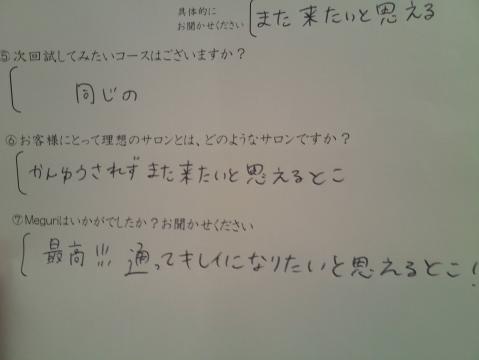 具体的に
お聞かせください
また来たいと思える
⑤次回試してみたいコースはございますか?
同じの
⑥お客様にとって理想のサロンとは、どのようなサロンですか?
かんゆうされずまた来たいと思えるとこ
⑦Meguriはいかがでしたか?お聞かせください
最高!!! 通ってキレイになりたいと思えるとこ!